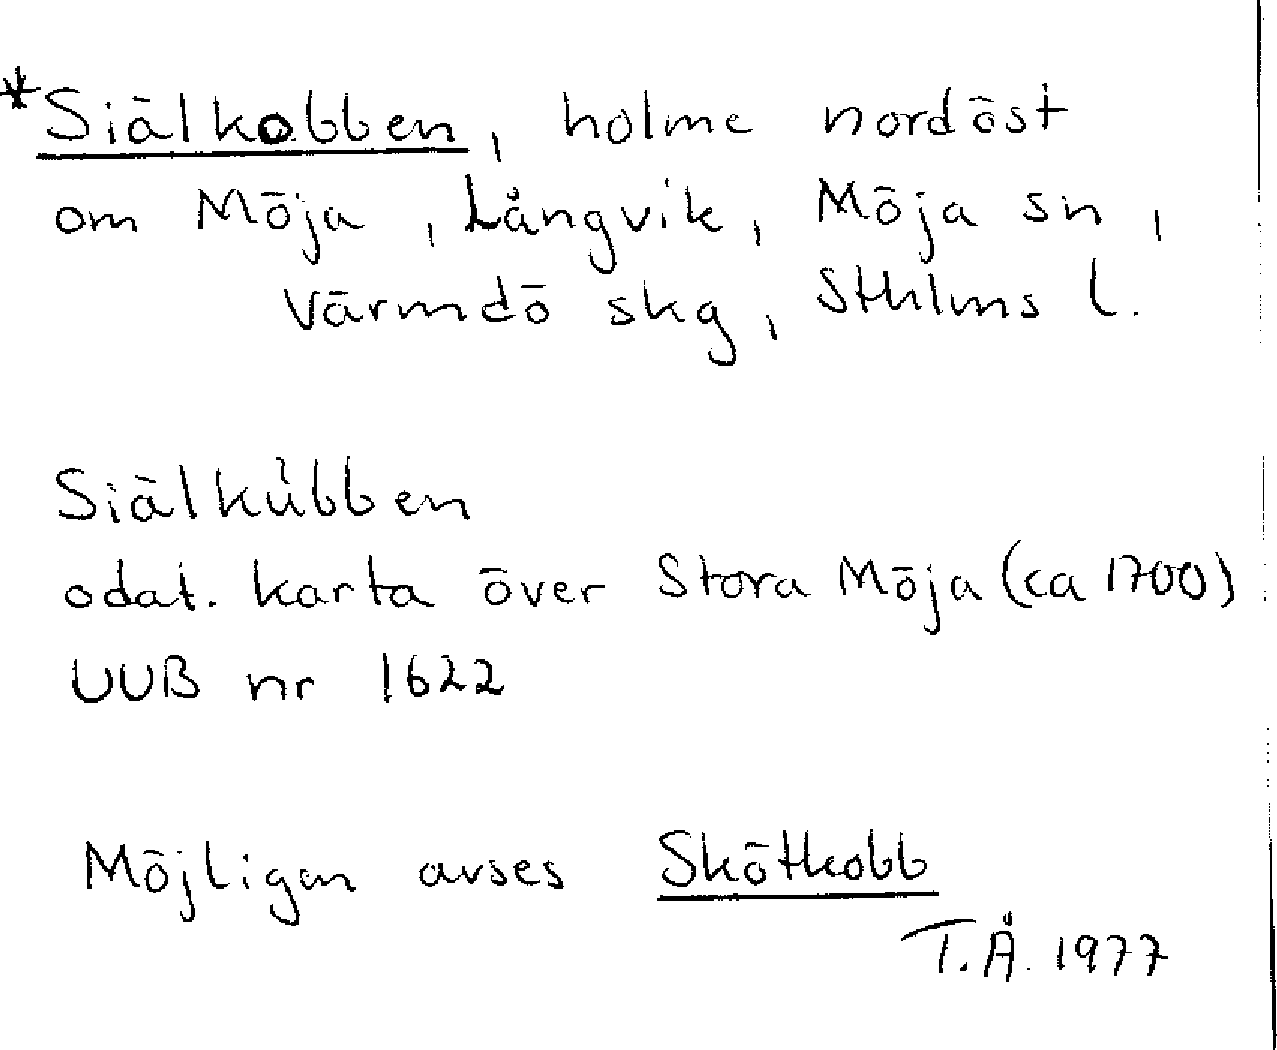 *Siälkobben, holme nordöst
om Möja, Långvik, Möja sn,
Värmdö skg, Sthlms l.
Siälkůbben
odat. karta över Stora Möja (ca 1700)
UUB nr 1622
Möjligen avses Skötkobb
T.Å. 1977